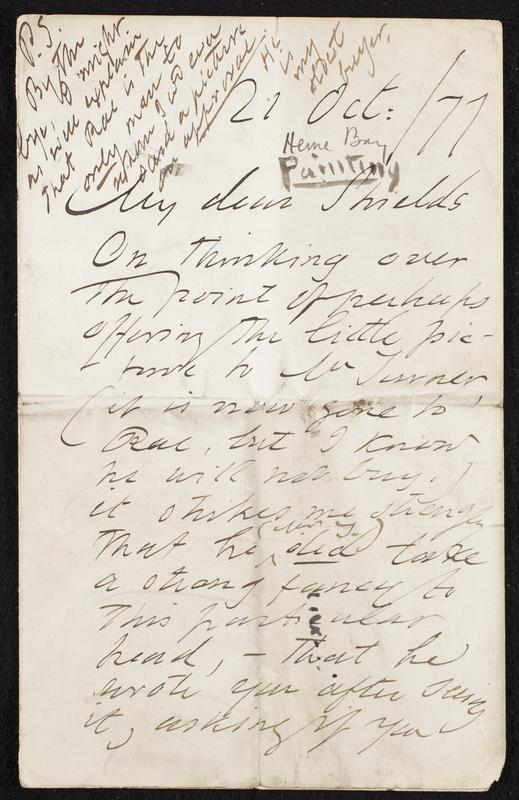 P.S.
By the
bye, I might
as well explain
that Rae is the
only man to
whom I wd ever
send a picture
on approval.
He
is my
oldest
buyer.
21 Oct: /77
Herne Bay
Painting
My dear Shields
On thinking over
the point of perhaps
offering the little pic-
ture to Mr Turner
(it is now gone to
Rae, but I know
he will not buy.)
it strikes me strongly
that he did take
a strong fancy to
this particular
head, – that he
wrote you after seeing
it, asking if you